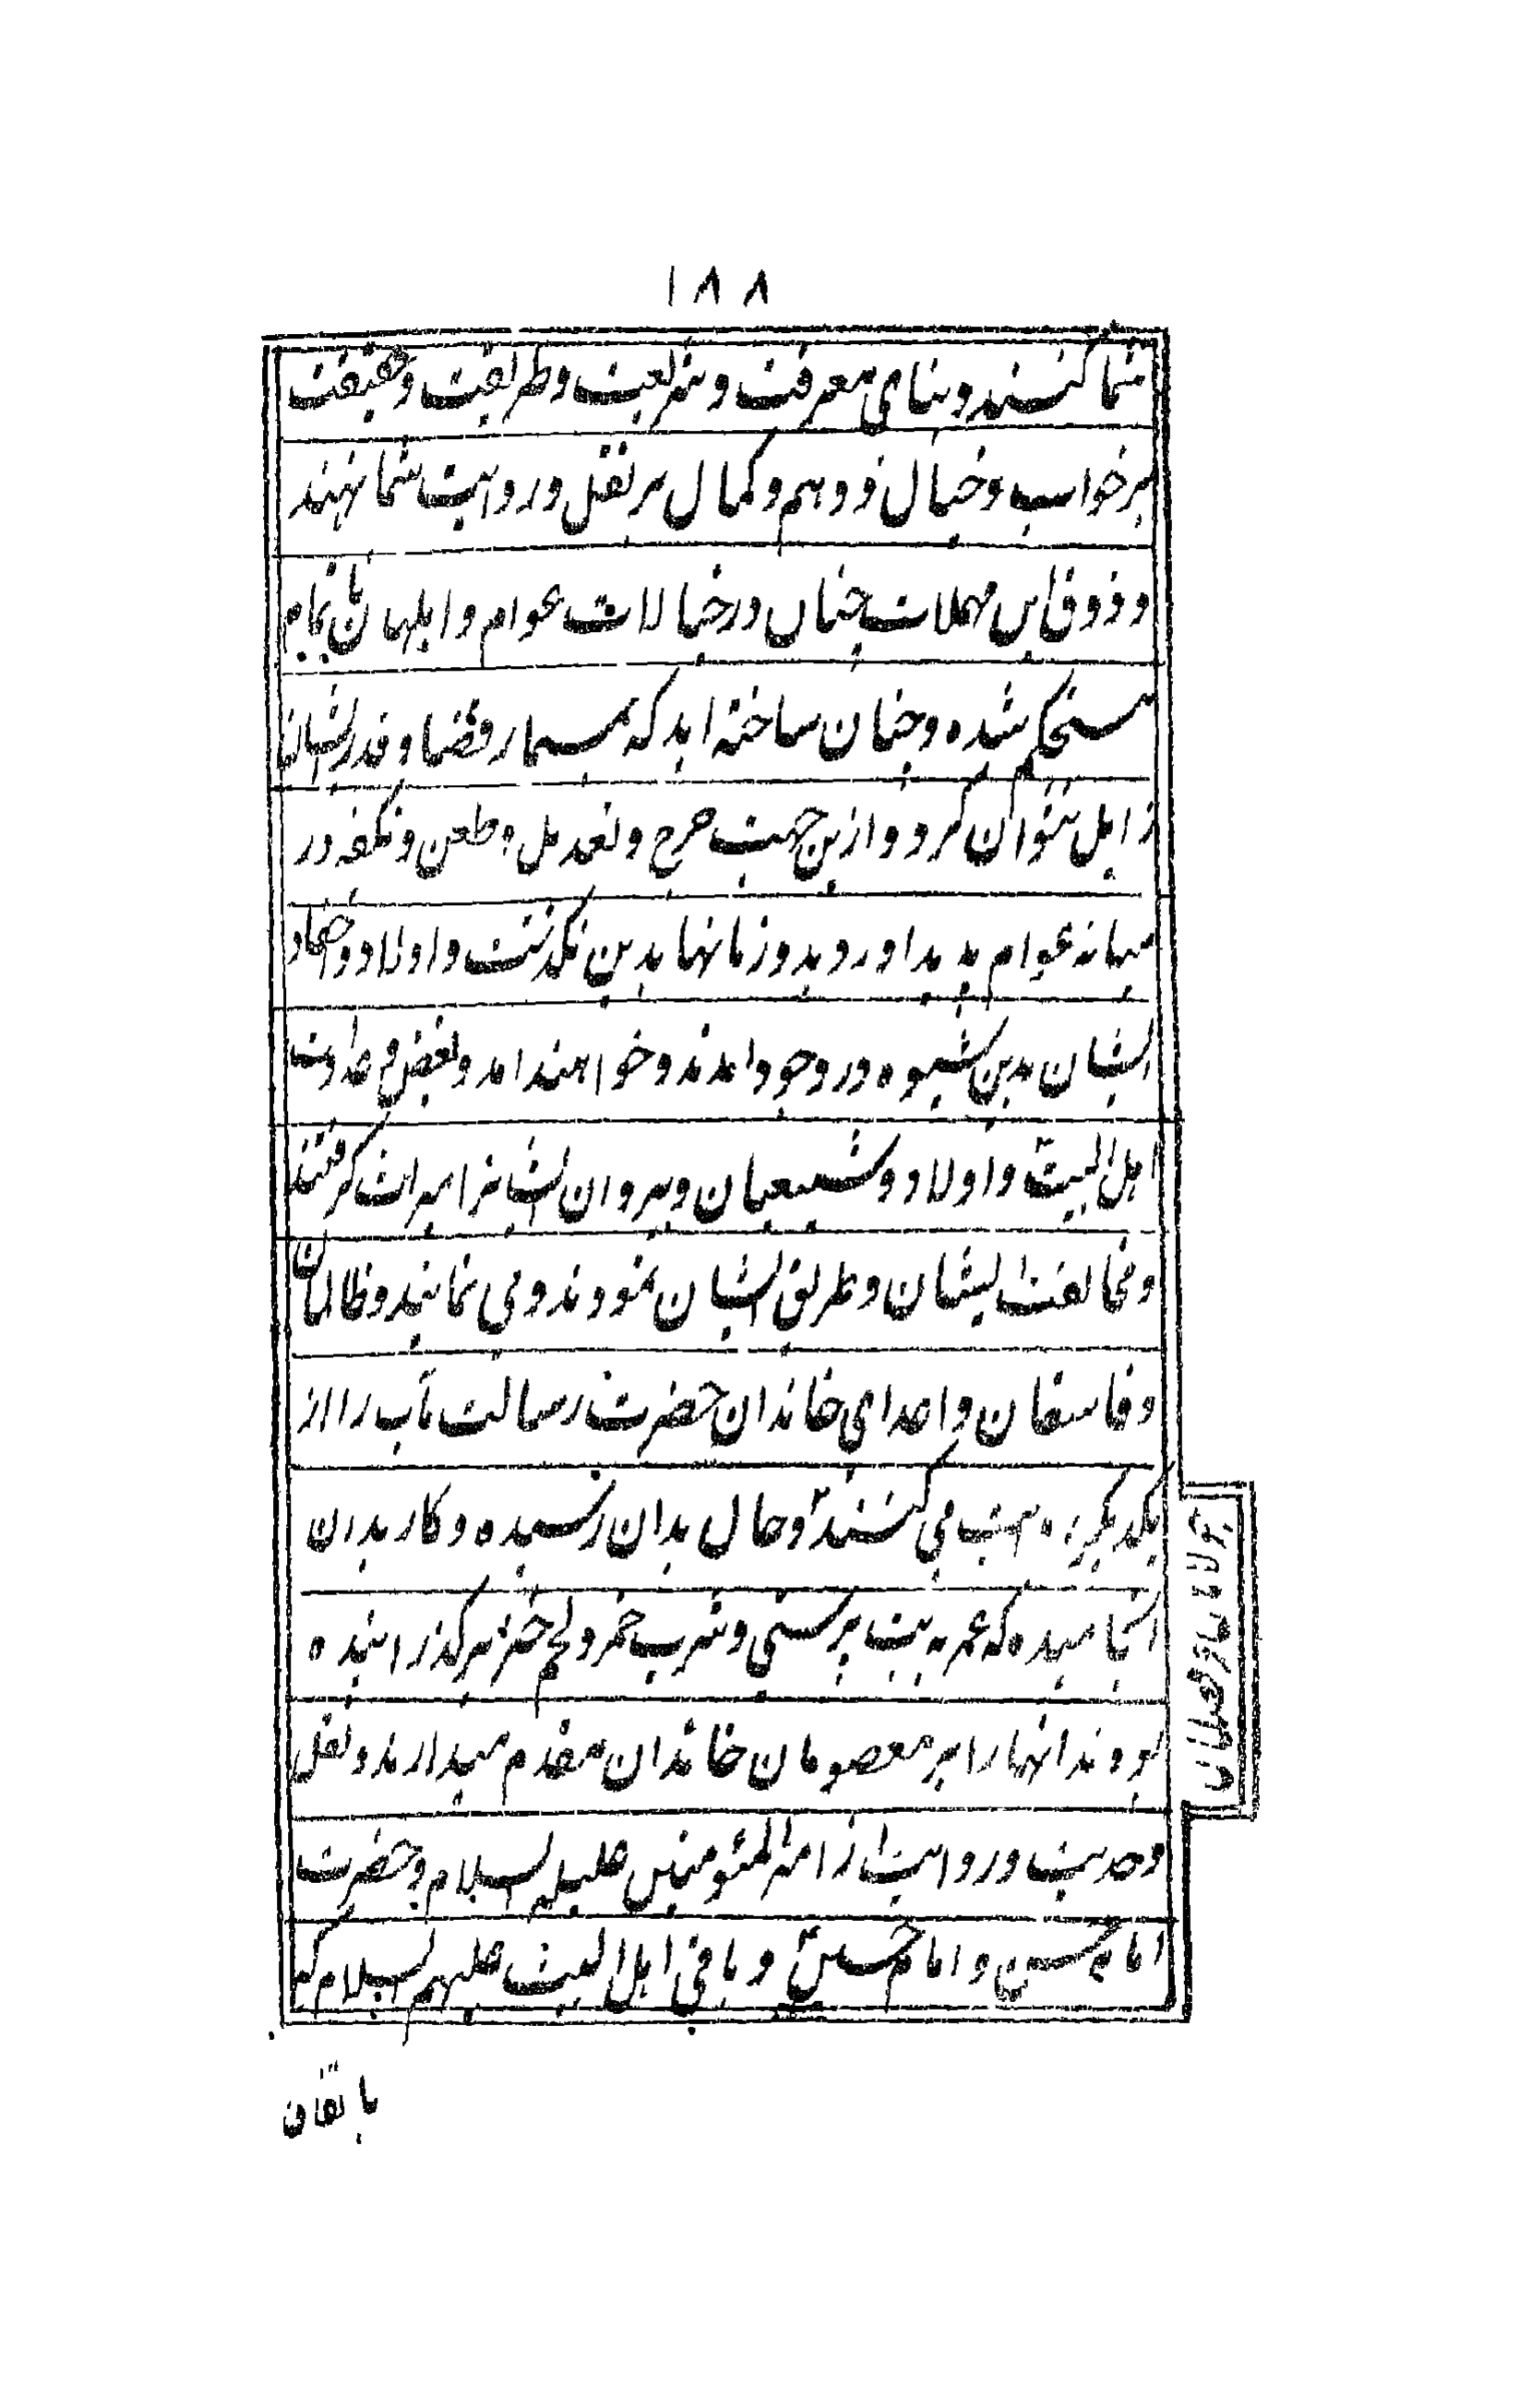 ۱۸۸
شما کنند و بنای معرفت و شریعت و طریقت و حقیقت
بر خواب و خیال و وهم و کمال بر نقل و روایت شما نهند
و ذوق این مهملات چنان در خیالات عوام و ابلهان
مستحکم شده و چنان ساخته اید که بمسمار قضا و قدر ایشانرا
زایل نتوان کرد و ازین جهت جرح و تعدیل و طعن و در
میانه عوام پدید اورد بدین نگذشت و اولاد و احفاد
ایشان بدین شیوه در وجود امدند و خواهند امد و بغض و عداوت
اهل البیت و اولاد و شیعیان و پیروان ایشانرا میراث گرفتند
و مخالفت ایشان و طریق ایشان نمودند و می نمایند و ظالمان
و فاسقان و اعدای خاندان حضرت رسالت مآب را از
یکدیگر می کنند و حال بدان رسیده و کار بدان
انجامیده که عمر به بت پرستی و شرب خمر و لحم خنزیر گذرانیده
بودند انها را بر معصومان خاندان مقدم میدارند و نقل
و حدیث و روایت از امیر المؤمنین علیه السلام و حضرت
امام حسن و امام حسین و باقی اهل البیت علیهم السلام که
باتفاق